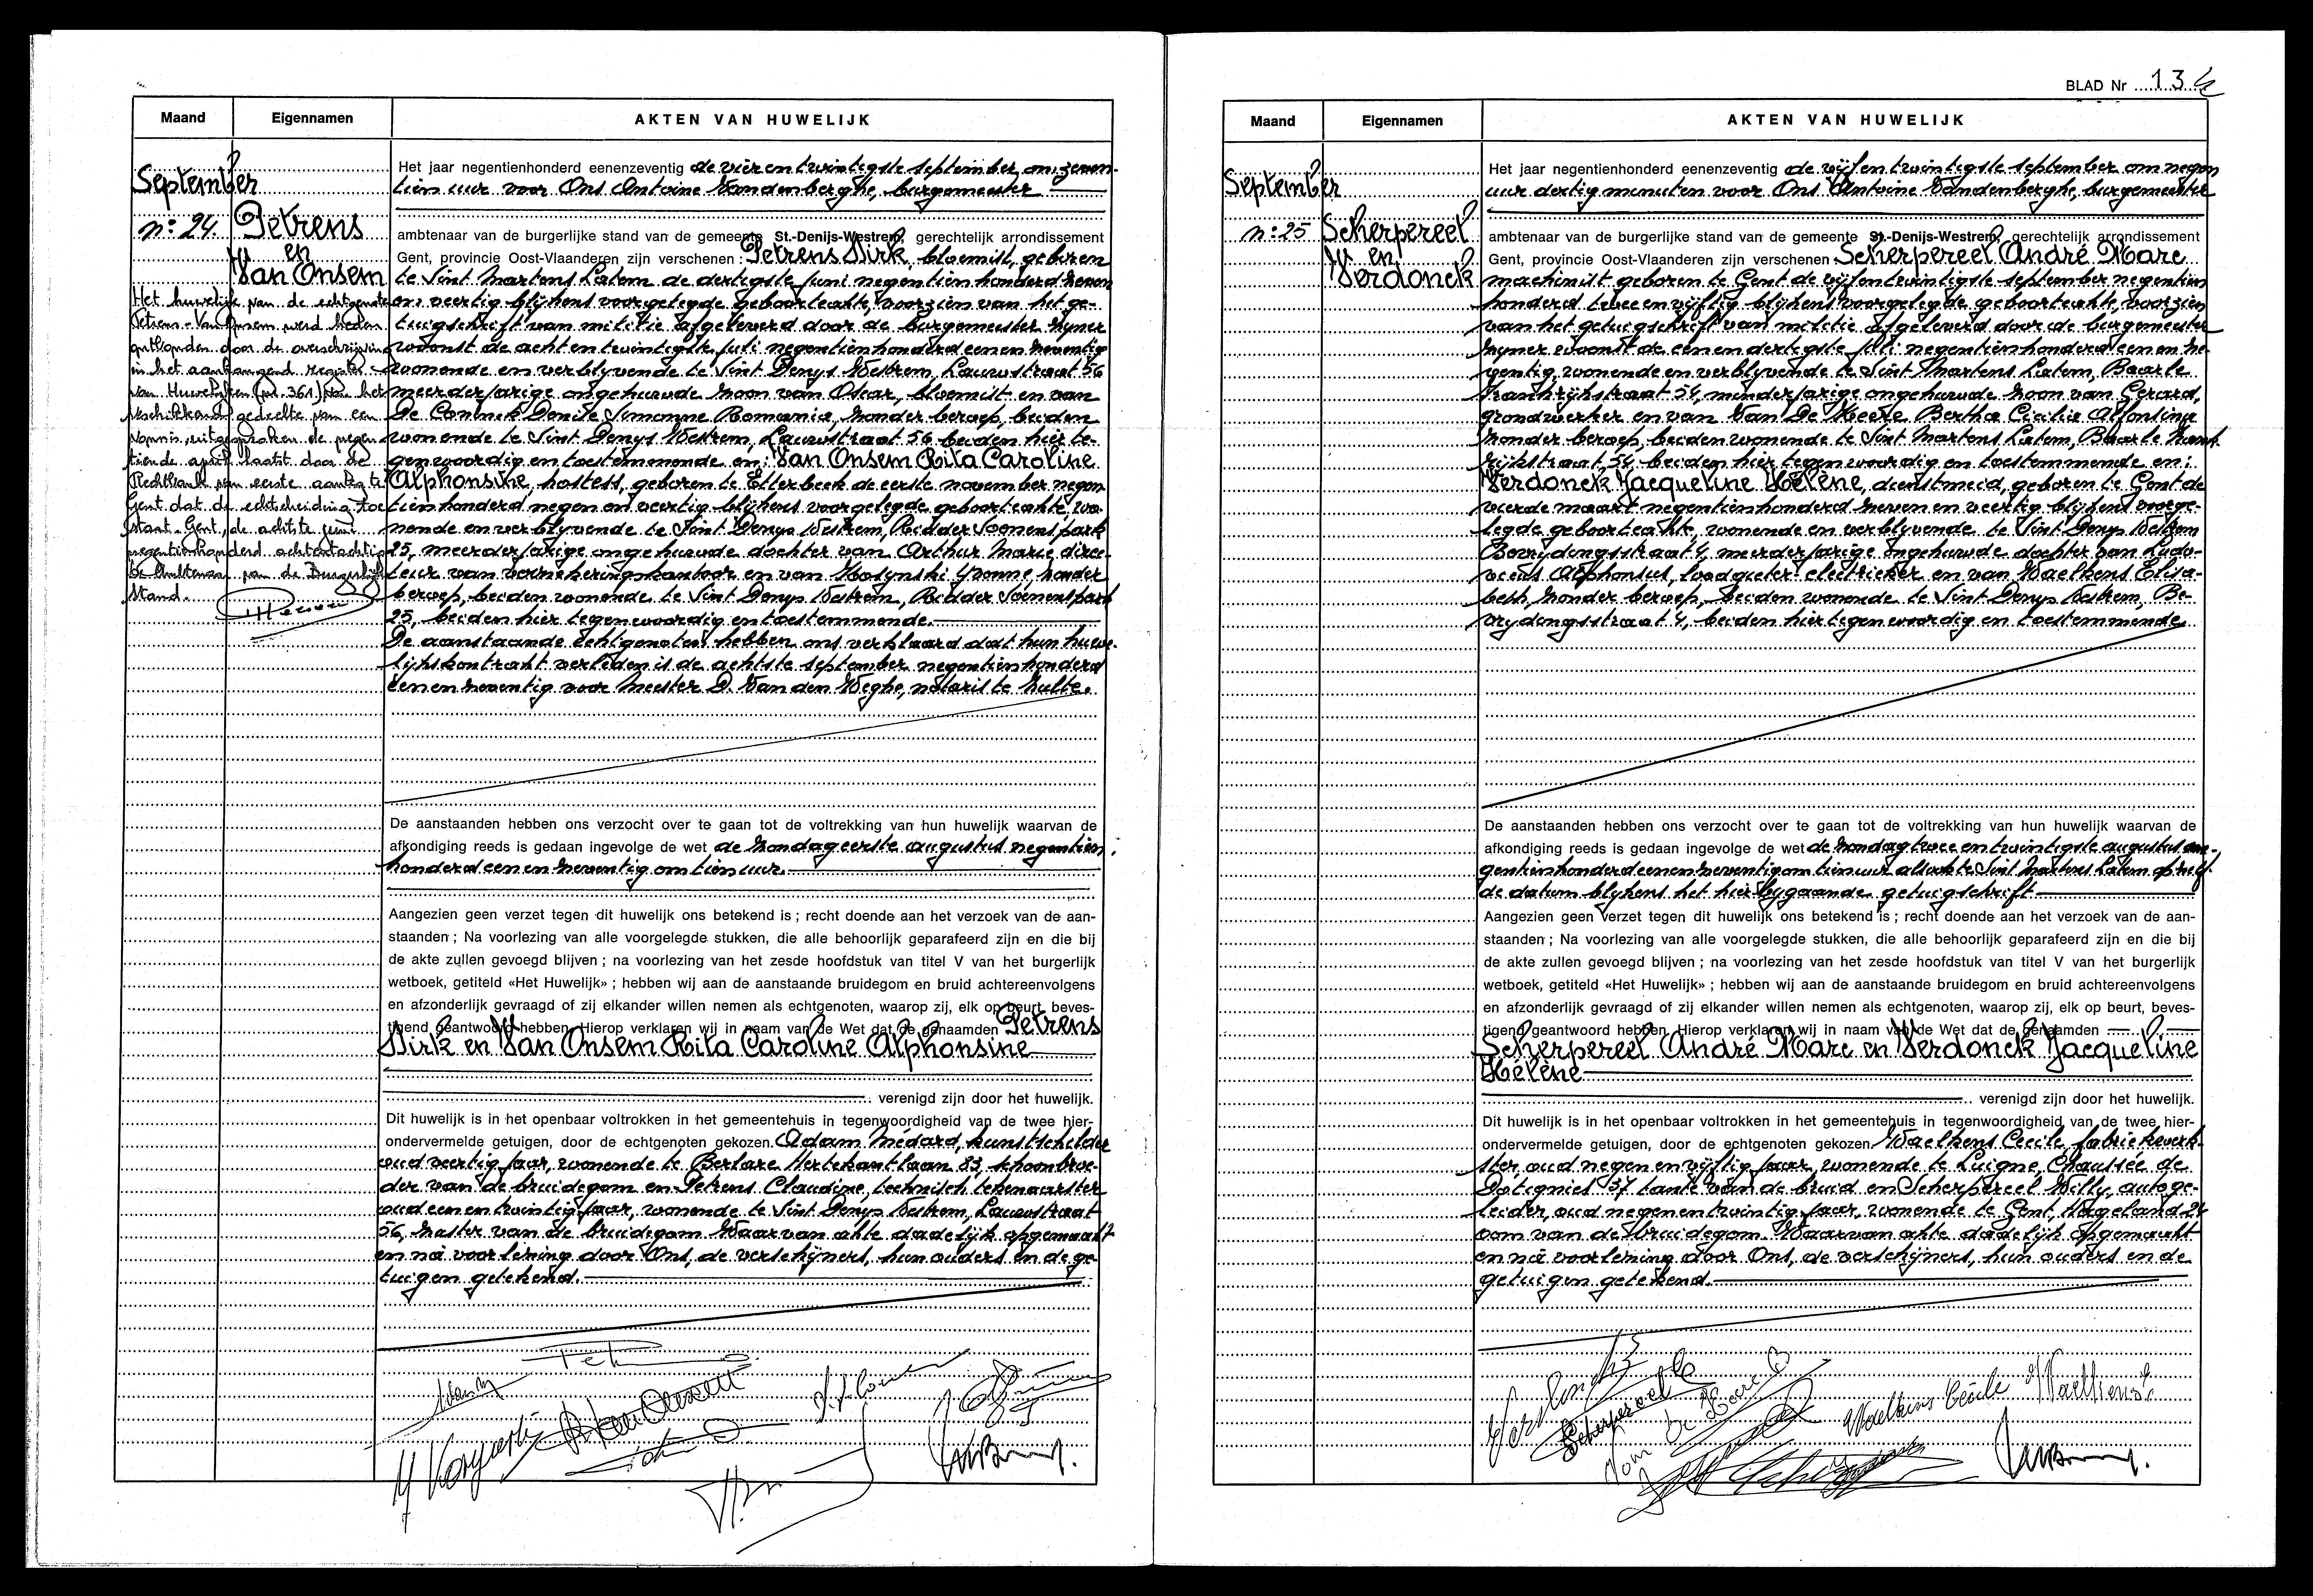 Maand
Eigennamen
AKTEN VAN HUWELIJK
September
n: 24
Petrens
en
Van Onsem
Het huwelijk van de echtgenoten
Petrens-Van Onsem werd heden
ontbonden door de overschrijving
in het aanhangend register
van Huwelijken (nr. 361) van het
beschikkend gedeelte van een
vonnis, uitgesproken de negen
tiende april laatst door de
Rechtbank van eerste aanleg te
Gent dat de echtscheiding toe
staat. Gent, de achtste juni
negentienhonderd achtentachtig
De Ambtenaar van de Burgerlijke
Stand.
Het jaar negentienhonderd eenenzeventig de vier en twintigste september om zeven-
tien uur voor Ons Antoine Vandenberghe, burgemeester
ambtenaar van de burgerlijke stand van de gemeente St.-Denijs-Westrem, gerechtelijk arrondissement
Gent, provincie Oost-Vlaanderen zijn verschenen: Petrens Dirk, bloemist, geboren
te Sint Martens Latem de dertigste juni negentienhonderd zeven
en veertig blijkens voorgelegde geboorteakte, voorzien van het ge-
tuigschrift van militie afgeleverd door de burgemeester zijner
woonst de acht en twintigste juli negentienhonderd een en zeventig
wonende en verblijvende te Sint Denys Westrem, Lauwstraat 56
meerderjarige ongehuwde zoon van Oscar, bloemist en van
De Coninck Denise Simonne Romania, zonder beroep, beiden
wonende te Sint Denys Westrem, Lauwstraat 56 beiden hier te-
genwoordig en toestemmende en: Van Onsem Rita Caroline
Alphonsine, hostess, geboren te Etterbeek de eerste november negen
tienhonderd negen en veertig blijkens voorgelegde geboorteakte, wo-
nende en verblyvende te Sint Denys Westrem, Ridder Soenenspark
25, meerderjarige ongehuwde dochter van Arthur Marie, direc-
teur van verzekeringskantoor en van Yvonne, zonder
beroep, beiden wonende te Sint Denys Westrem, Ridder Soenenspark
25, beiden hier tegenwoordig en toestemmende.
De aanstaande echtgenoten hebben ons verklaard dat hun huwe-
lijkskontrakt verleden is de achtste september negentienhonderd
een en zeventig voor meester D. Van den Weghe, notaris te Zulte.
De aanstaanden hebben ons verzocht over te gaan tot de voltrekking van hun huwelijk waarvan de
afkondiging reeds is gedaan ingevolge de wet de zondag eerste augustus negentien
honderd een en zeventig om tien uur.
Aangezien geen verzet tegen dit huwelijk ons betekend is ; recht doende aan het verzoek van de aan-
staanden ; Na voorlezing van alle voorgelegde stukken, die alle behoorlijk geparafeerd zijn en die bij
de akte zullen gevoegd blijven ; na voorlezing van het zesde hoofdstuk van titel V van het burgerlijk
wetboek, getiteld «Het Huwelijk» ; hebben wij aan de aanstaande bruidegom en bruid achtereenvolgens
en afzonderlijk gevraagd of zij elkander willen nemen als echtgenoten, waarop zij, elk op beurt, beves-
tigend geantwoord hebben. Hierop verklaren wij in naam van de Wet dat de genaamden Petrens
Dirk en Van Onsem Rita Caroline Alphonsine
verenigd zijn door het huwelijk.
Dit huwelijk is in het openbaar voltrokken in het gemeentehuis in tegenwoordigheid van de twee hier-
ondervermelde getuigen, door de echtgenoten gekozen. Adam Médard, kunstschilder
oud veertig jaar, wonende te Berlare Hertekantlaan 83, schoonbroe-
der van de bruidegom en Petrens Claudine, technisch tekenaarster
oud een en twintig jaar, wonende te Sint Denys Westrem, Lauwstraat
56, zuster van de bruidegom Waarvan akte dadelijk opgemaakt
en na voorlezing door Ons, de verschijners, hun ouders en de ge-
tuigen getekend.
BLAD Nr 134
Maand
Eigennamen
AKTEN VAN HUWELIJK
September
n: 25
Scherpereel
en
Verdonck
Het jaar negentienhonderd eenenzeventig de vijf en twintigste september om negen
uur dertig minuten voor Ons Antoine Vandenberghe, burgemeester
ambtenaar van de burgerlijke stand van de gemeente St.-Denijs-Westrem, gerechtelijk arrondissement
Gent, provincie Oost-Vlaanderen zijn verschenen Scherpereel André Marc
machinist geboren te Gent de vijf en twintigste september negentien
honderd twee en vijftig blijkens voorgelegde geboorteakte, voorzien
van het getuigschrift van militie afgeleverd door de burgemeester
zijner woonst de een en dertigste juli negentienhonderd een en ze-
ventig, wonende en verblyvende te Sint Martens Latem, Baarle
Frankrijkstraat 54, minderjarige ongehuwde zoon van Gerard,
grondwerker en van Van De Keere Bertha Cecilia Alfonsina
zonder beroep, beiden wonende te Sint Martens Latem, Baarle Frank-
rijkstraat 54 beiden hier tegenwoordig en toestemmende en:
Verdonck Jacqueline Hélène, dienstmeid, geboren te Gent de
vierde maart negentienhonderd zeven en veertig blijkens voorge-
legde geboorteakte, wonende en verblyvende te Sint Denys Westrem
Bevrydingsstraat 4, meerderjarige ongehuwde dochter van Ludo-
vicus Alphonsus, loodgieter-electrieker en van Waelkens Elisa-
beth, zonder beroep, beiden wonende te Sint Denys Westrem, Be-
vrydingsstraat 4, beiden hier tegenwoordig en toestemmende
De aanstaanden hebben ons verzocht over te gaan tot de voltrekking van hun huwelijk waarvan de
afkondiging reeds is gedaan ingevolge de wet de zondag twee en twintigste augustus ne-
gentienhonderd een en zeventig om tien uur alsook te Sint Martens Latem op zelf-
de datum blijkens het hierbygaande getuigschrift
Aangezien geen verzet tegen dit huwelijk ons betekend is ; recht doende aan het verzoek van de aan-
staanden ; Na voorlezing van alle voorgelegde stukken, die alle behoorlijk geparafeerd zijn en die bij
de akte zullen gevoegd blijven ; na voorlezing van het zesde hoofdstuk van titel V van het burgerlijk
wetboek, getiteld «Het Huwelijk» ; hebben wij aan de aanstaande bruidegom en bruid achtereenvolgens
en afzonderlijk gevraagd of zij elkander willen nemen als echtgenoten, waarop zij, elk op beurt, beves-
tigend geantwoord hebben. Hierop verklaren wij in naam van de Wet dat de genaamden
Scherpereel André Marc en Verdonck Jacqueline
Hélène
verenigd zijn door het huwelijk.
Dit huwelijk is in het openbaar voltrokken in het gemeentehuis in tegenwoordigheid van de twee hier-
ondervermelde getuigen, door de echtgenoten gekozen. Waelkens Cecile, fabriekwerk-
ster oud negen en vijftig jaar, wonende te Luigne, Chaussée de
Dotignies 37 tante van de bruid en Scherpereel Willy, autoge-
leider, oud negen en twintig jaar, wonende te Gent, Hageland 24
oom van de bruidegom Waarvan akte dadelijk opgemaakt
en na voorlezing door Ons, de verschijners, hun ouders en de
getuigen getekend.
Waelkens Cécile